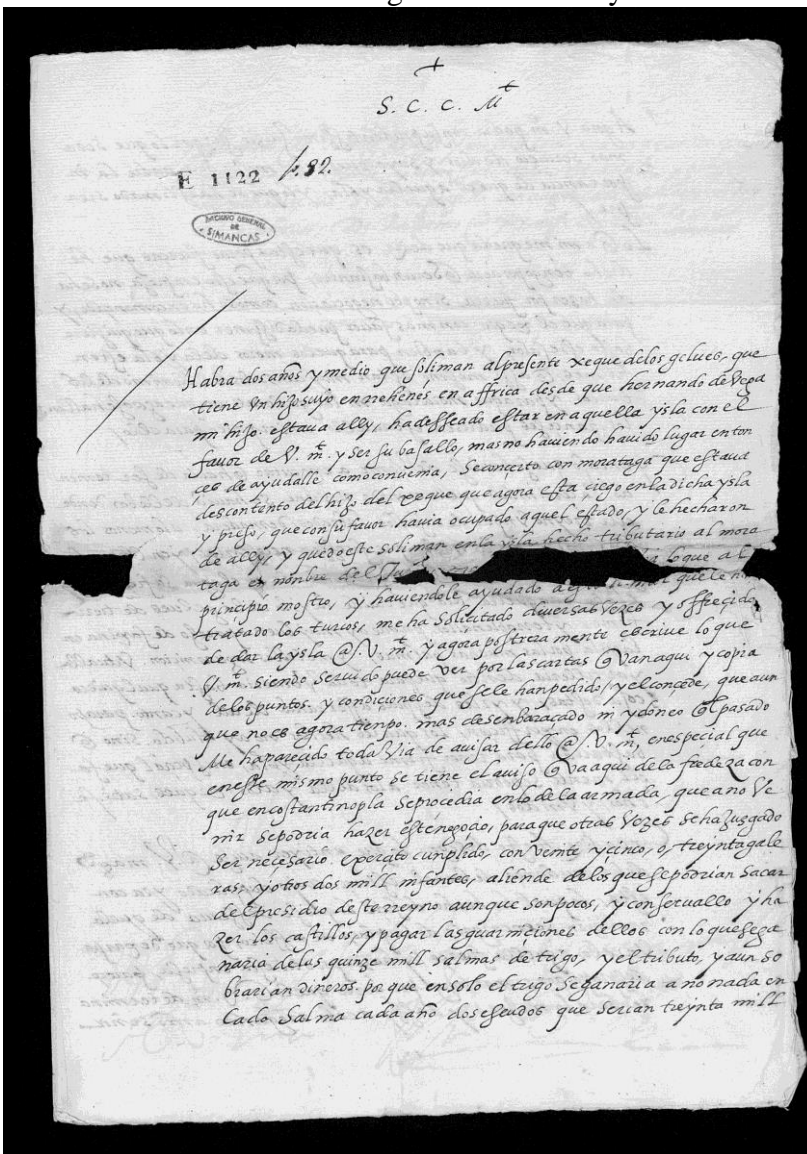 S. C. C. Mt
E 1122 f. 82.
ARCHIVO GENERAL
DE
SIMANCAS
Habra dos años y medio que soliman al presente xeque delos gelues, que
tiene vn hijo suyo en rehenes en affrica desde que hernando de Vega
mi hijo estaua ally, ha desseado estar en aquella ysla con el
fauor de V. mt. y ser su basallo, mas no hauiendo hauido lugar enton
ces de ayudalle como conuenia, se conçerto con morataga que estaua
descontento del hijo del xeque que agora esta ciego en la dicha ysla
y preso, que con su fauor hauia ocupado aquel estado, y le hecharon
de ally, y quedo este soliman en la ysla hecho tributario al mora
taga en nonbre del lo que al
principio mostro, y hauiendole ayudado a que le
tratado los turcos, me ha solicitado diuersas vezes y offrecido
de dar la ysla @ S. V. mt. y agora postreramente escriue lo que
V. mt. siendo seruido puede ver por las cartas q van aqui y copia
de los puntos y condiciones que se le han pedido, y el concede, que aun
que no es agora tienpo mas desenbaraçado ni ydoneo ql pasado
Me ha parecido toda via de auisar dello @ S. V. mt, en especial que
en este mismo punto se tiene el auiso q va aqui de la friedeza con
que en costantinopla se procedia en lo de la armada, que a no ve
nir se podria hazer este negocio, para que otras vezes se ha juzgado
ser necesario exercito cunplido, con veinte y cinco, o, treynta gale
ras, y otros dos mill infantes, aliende de los que se podrian sacar
del presidio deste rreyno aunque son pocos, y conseruallo y ha
zer los castillos, y pagar las guarniciones dellos con lo que se ga
naria de las quinze mill salmas de trigo, y el tributo, y aun so
brarian dineros por que en solo el trigo se ganaria a no nada en
Cada Salma cada año dos escudos que serian treynta mill